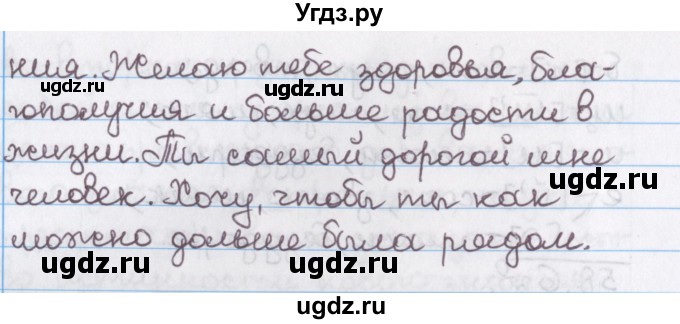 Угдз.ру
ния. Желаю тебе здоровья, бла-
гополучия и больше радости в
жизни. Ты самый дорогой мне
человек. Хочу, чтобы ты как
можно дольше была рядом.
ugdz.ru
ugdz.ru
ugdz.ru
ugdz.ru
ugdz.ru
ugdz.ru
ugdz.ru
ugdz.ru